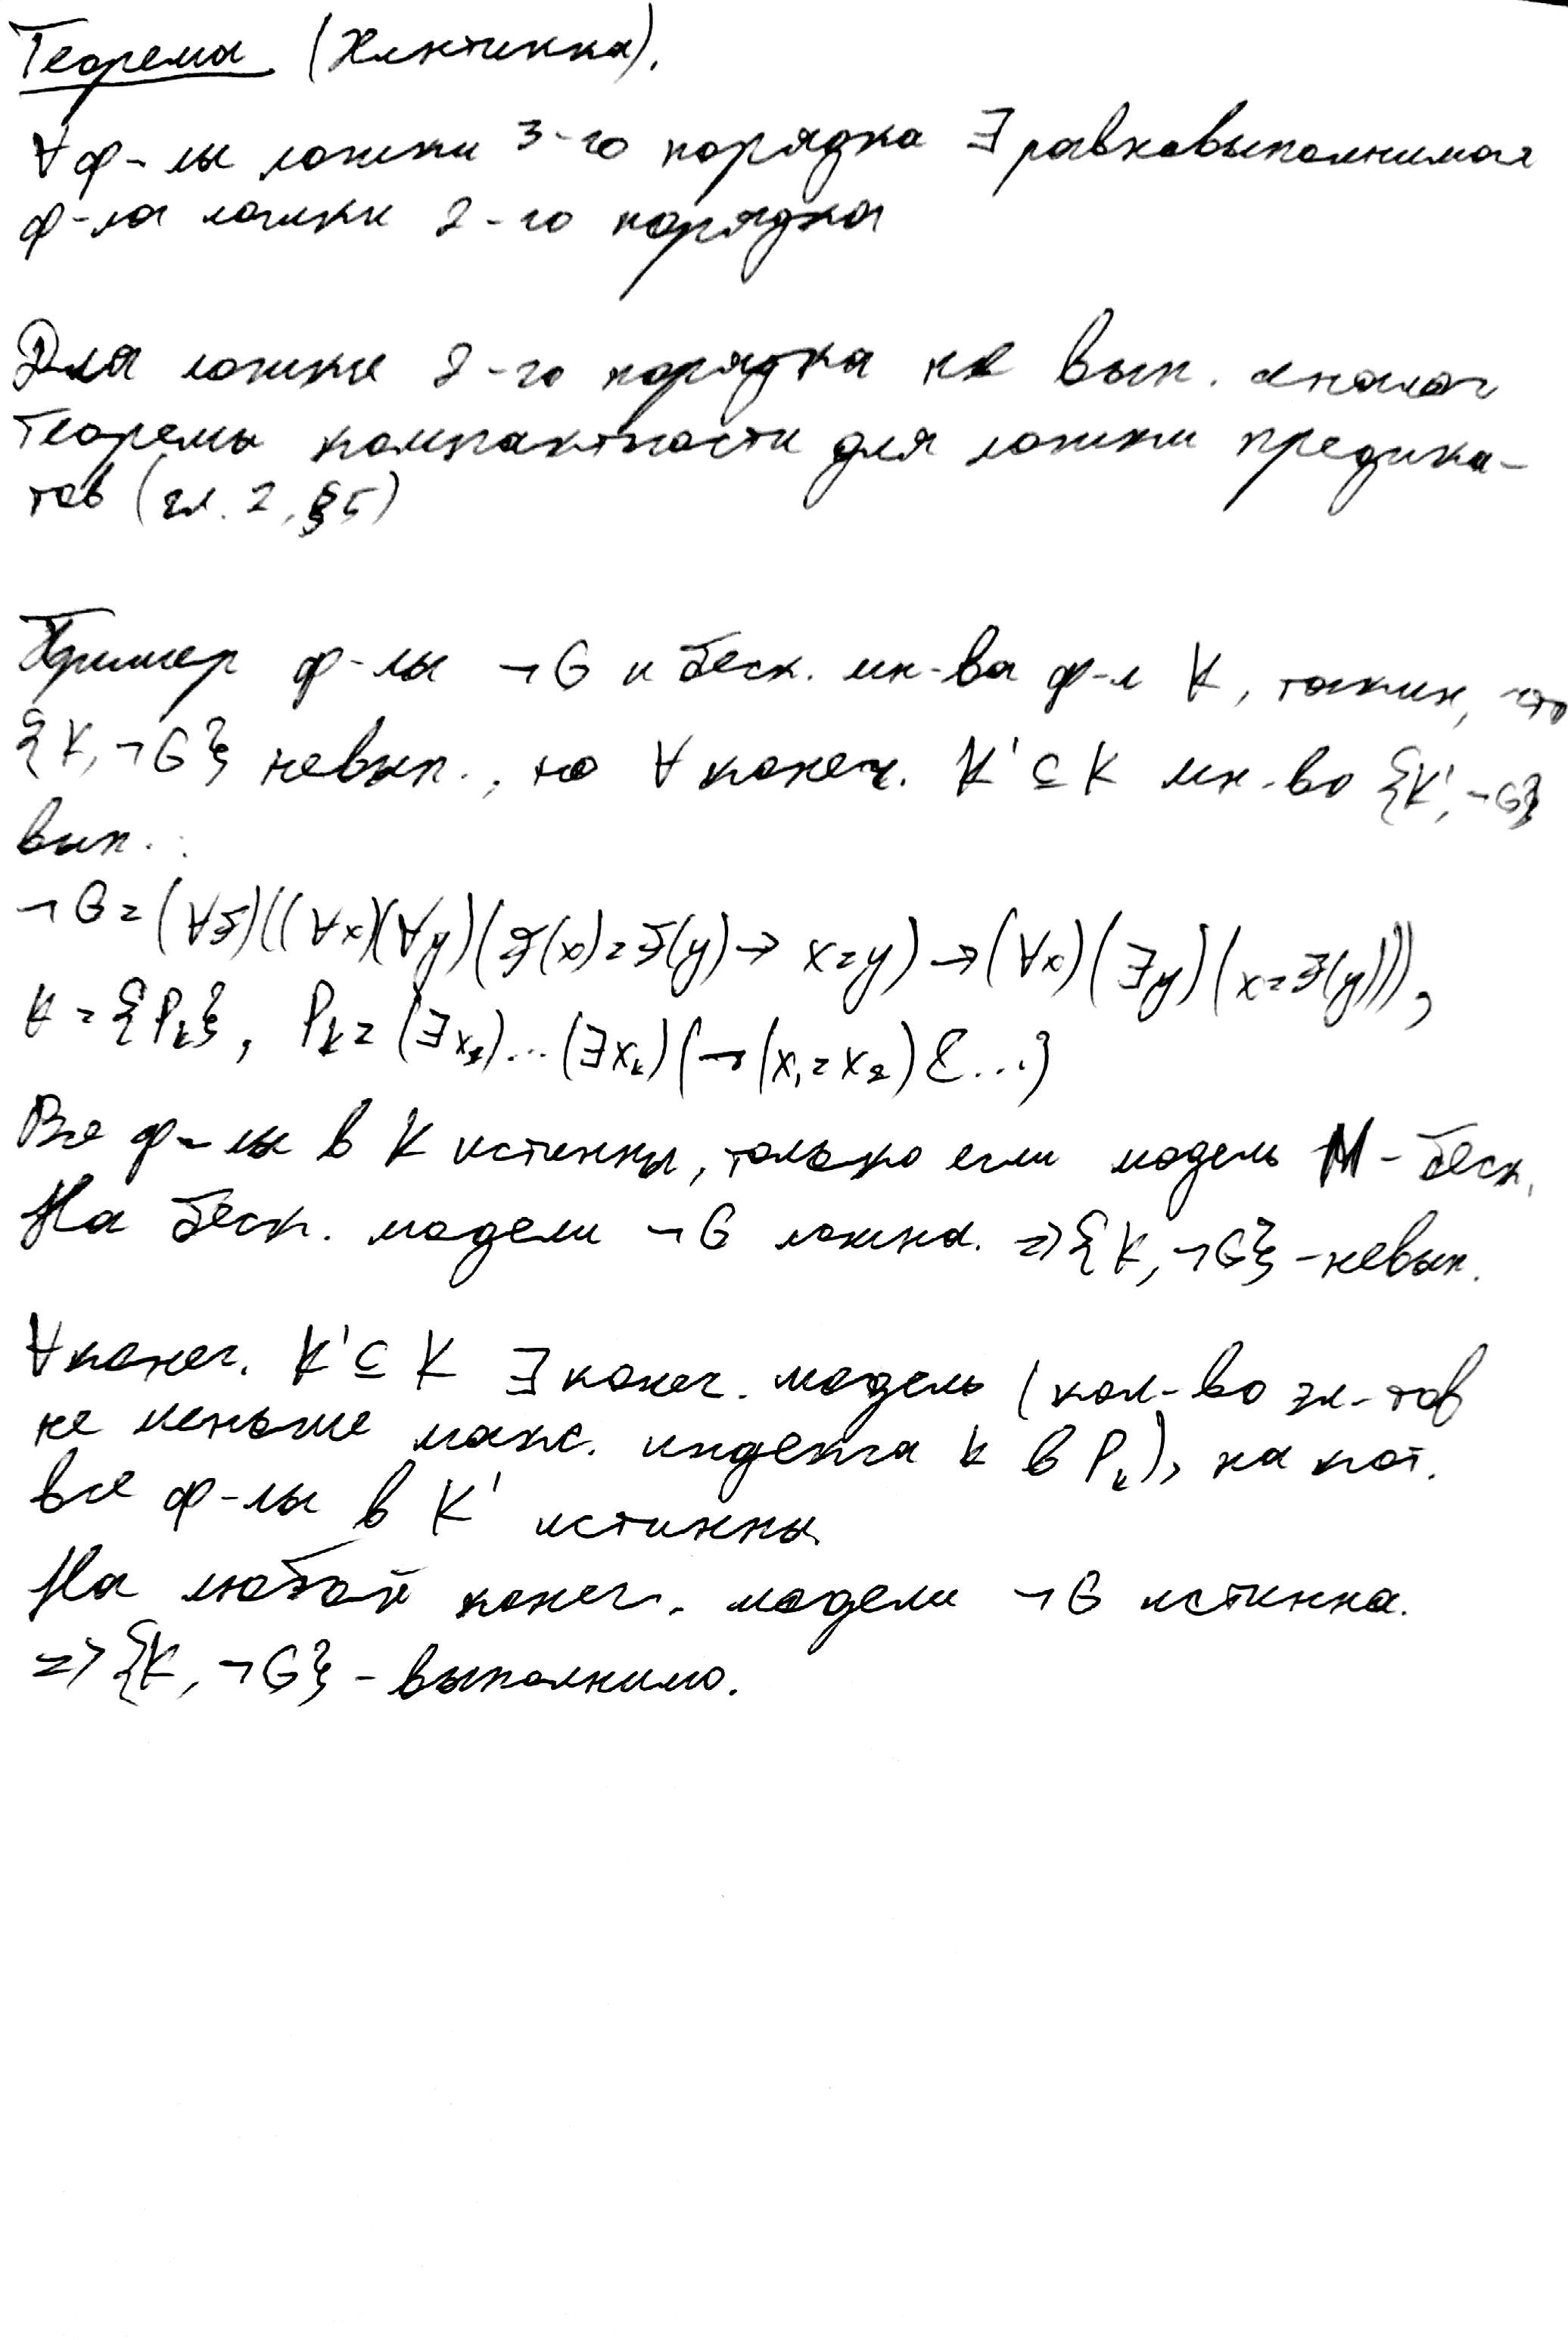 Теорема (Хинтикка).
∀ ф-лы логики 3-го порядка ∃ равновыполнимая
ф-ла логики 2-го порядка
Для логики 2-го порядка не вып. аналог
теоремы компактности для логики предика-
тов (гл. 2, §5)
Пример ф-лы ¬G и беск. мн-ва ф-л K, таких, что
{K, ¬G} невып., но ∀ конеч. K' ⊆ K мн-во {K', ¬G}
вып.:
¬G = (∀F)((∀x)(∀y)(F(x)=F(y) → x=y) → (∀x)(∃y)(x=F(y))),
K = {P_k}, P_k = (∃x_1)...(∃x_k)(¬(x_1=x_2) & ...)
Все ф-лы в K истинны, только если модель M - беск.
На беск. модели ¬G ложна. => {K, ¬G} - невып.
∀ конеч. K' ⊆ K ∃ конеч. модель (кол-во эл-тов
не меньше макс. индекса k в P_k), на кот.
все ф-лы в K' истинны
На любой конеч. модели ¬G истинна.
=> {K, ¬G} - выполнимо.